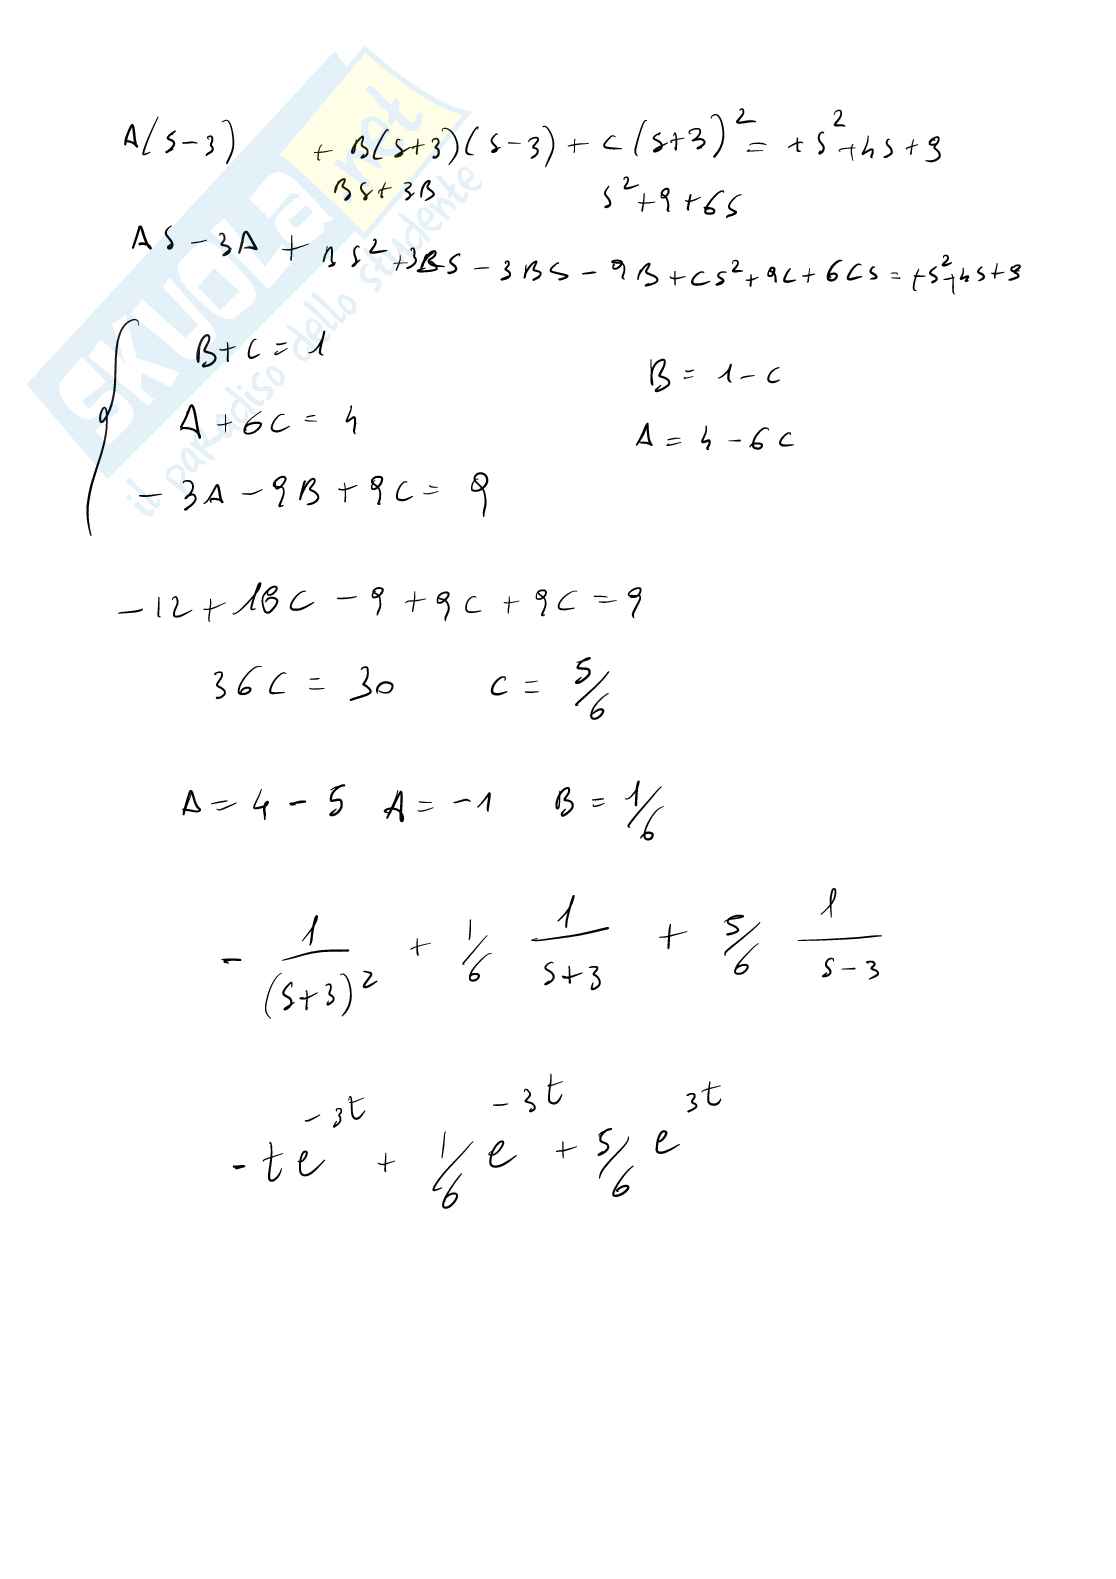 A(s-3) + B(s+3)(s-3) + C(s+3)² = +s²+4s+9
Bs+3B s²+9+6s
As-3A + Bs²+3Bs-3Bs-9B+Cs²+9C+6Cs=+s²+4s+9
B+C=1 B=1-C
A+6C=4 A=4-6C
-3A-9B+9C=9
-12+18C-9+9C+9C=9
36C=30 C=5/6
A=4-5 A=-1 B=1/6
- 1/(s+3)² + 1/6 1/(s+3) + 5/6 1/(s-3)
-te^-3t + 1/6 e^-3t + 5/6 e^3t
SKUOLA.net
il paradiso dello studente